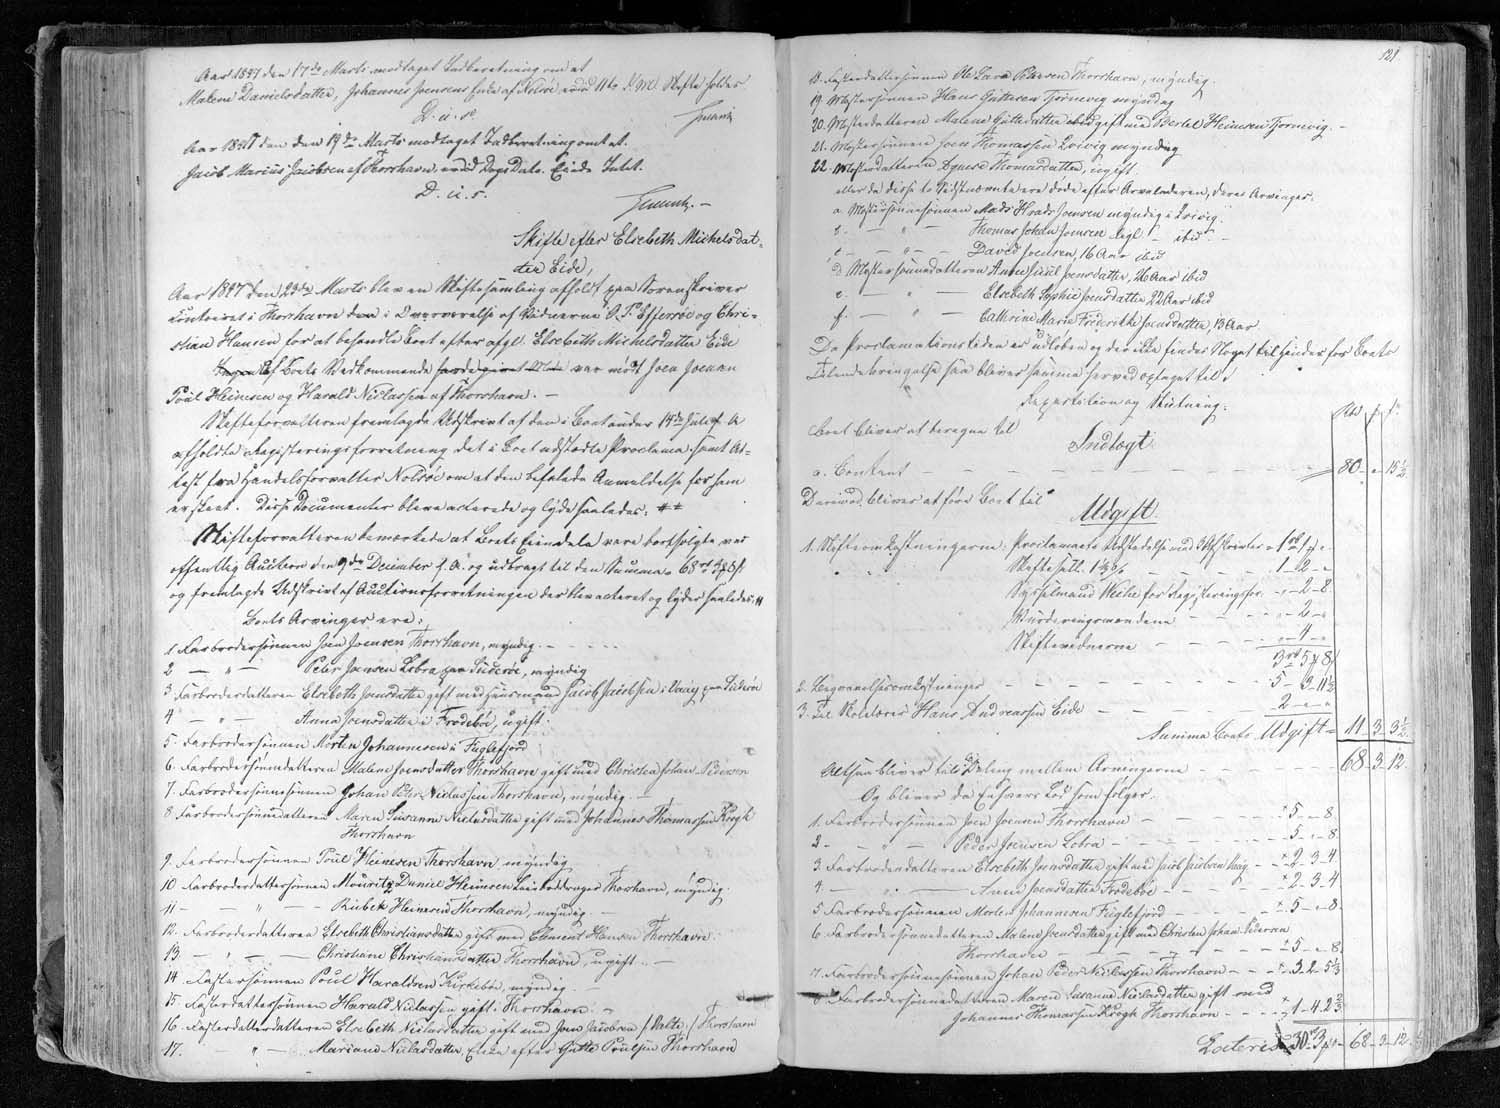 Aar 1847 den 17de Marts modtaget Indberetning om at
Malene Danielsdatter, Johannes Joensens Enke af Nolsö, død 11te Skifte holdes
D. u. s.
Aar 1847 den 19de Marts modtaget Indberetning om at
Jacob Marius Jacobsen af Thorshavn, død Dags Dato. Eiede Intet.
D. u. s.
Skifte efter Elsebeth Michelsdat-
ter Eide,
Aar 1847 den 23de Marts blev en Skiftesamling afholdt paa Sorenskriver
Contoiret i Thorshavn i Overværelse af Vidnerne O. P. Effersöe og Chri-
stian Hansen for at behandle Boet efter afgl. Elsebeth Michelsdatter Eide
af Boets Vedkommende var mödt Joen Joensen
Poul Heinesen og Harald Niclassen af Thorshavn. -
Skifteforvalteren fremlagde Udskrivt af den i Boet under 14de Juli f. A
afholdte Registreringsforretning det i Boet udstædte Proclama samt At-
test fra Handelsforvalter Nolsöe om at den befalede Anmeldelse for ham
er skeet. Disse Documenter bleve acterede og lyde saaledes:
Skifteforvalteren bemærkede at Boets Eiendele vare bortsolgte ved
offentlig Auction den 9de December f. A. og udbragt til den Summa 68
og fremlagde Udskrivt af Auctionsforretningen der blev acteret og lyder saaledes:
Boets Arvinger ere:
1. Farbrodersönnen Joen Joensen Thorshavn, myndig
2 — " — Peter Joensen Lobra paa Suderöe, myndig
3 Farbroderdatteren Elsebeth Joensdatter gift med Huusmand Jacob Jacobsen i Vaag paa Suderöe
4 — " — Anna Joensdatter i Frodeböe, ugift.
5. Farbrodersönnen Morten Johannesen i Fuglefjord
6. Farbrodersönnedatteren Malene Joensdatter Thorshavn gift med Christen Johan Pedersen
7. Farbrodersönnesönnen Johan Peter Niclassen Thorshavn, myndig.
8 Farbrodersönnedatteren Maren Susanne Niclasdatter gift med Johannes Thomassen Krogh
Thorshavn
9. Farbrodersönnen Poul Heinesen Thorshavn myndig
10 Farbroderdattersönnen Mouritz Daniel Heinesen Thorshavn, myndig.
11 — " — Rubek Heinesen Thorshavn, myndig. —
12. Farbroderdatteren Elsebeth Christiansdatter gift med Clement Hansen Thorshavn
13 — " — Christiane Christiansdatter Thorshavn, ugift. —
14 Fastersönnen Poul Haraldsen Kirkeböe, myndig
15. Fasterdattersönnen Harald Niclassen gift. Thorshavn.
16. Fasterdatterdatteren Elsebeth Niclasdatter gift med Joen Jacobsen / Thorshavn
17. — " — Mariane Niclasdatter Enke efter Gutte Poulsen Thorshavn
121
18. Fasterdattersönnen Ole Lars Petersen Thorshavn, myndig.
19. Mostersönnen Hans Guttesen Tjörnevig myndig
20. Mosterdatteren Malene Guttesdatter gift med Bertel Heinesen Tjörnevig. —
21. Mostersönnen Joen Thomassen Qvivig myndig
22. Mosterdatteren Thomasdatter, ugift.
eller da disse to Sidstnævnte ere döde efter Arveladeren, deres Arvinger.
a. Mostersönnesönnen Mads Joensen myndig i Qvivig.
b. — " — Thomas Johan Joensen ligl. — ibid —
c. — " — David Joensen, 16 Aar ibid
d. Mostersönnedatteren Anne Joensdatter, 26 Aar ibid
e. — " — Elsebeth Sophie Joensdatter 22 Aar ibid
f. — " — Cathrine Marie Frederikke Joensdatter, 13 Aar.
Da Proclamationstiden er udloben og der ikke findes Noget til Hinder for Boets
Tilendebringelse saa bliver samme herved optaget til
Repartition og Slutning.
Boet bliver at beregne til
Indtægt.
a. Contant — 80 - " - 15½
Derimod bliver at före Boet til
Udgift.
1. Skifteomkostningerne: Proclamaets Udstædelse med 3 Afskrivter
Skiftesall. — 1 - 2 - "
Sysselmand Weihe for Registreringsfor. " - 2 - 8.
Vurderingsmændene — " - 2 - "
Skiftevidnerne — " - 4 - "
3 - 5 - 8
2. Begravelsesomkostninger — 5 - 3 - 11½
3. Til Hans Andreassen Eide — 2 - " - "
Summa Boets Udgift = 11 - 3 - 3½
Altsaa bliver til Deling mellem Arvingerne — 68 - 3 - 12.
Og bliver da Enhvers Lod som fölger:
1. Farbrodersönnen Joen Joensen Thorshavn — 5 - " - 8
2 — " — Peder Joensen Lobra — 5 - " - 8
3. Farbroderdatteren Elsebeth Joensdatter gift med Jacob Jacobsen Vaag — 2 - 3 - 4
4 — " — Anna Joensdatter Frodeböe — 2 - 3 - 4
5 Farbrodersönnen Morten Johannesen Fuglefjord — 5 - " - 8
6 Farbrodersönnedatteren Malene Joensdatter gift med Christen Johan Pedersen
Thorshavn — 5 - " - 8
7. Farbrodersönnesönnen Johan Peder Niclassen Thorshavn — 3 - 2 - 5⅓
8. Farbrodersönnedatteren Maren Susanne Niclasdatter gift med
Johannes Thomassen Krogh Thorshavn — 1 - 4 - 2⅔
Lateris 30 3 68 - 3 - 12